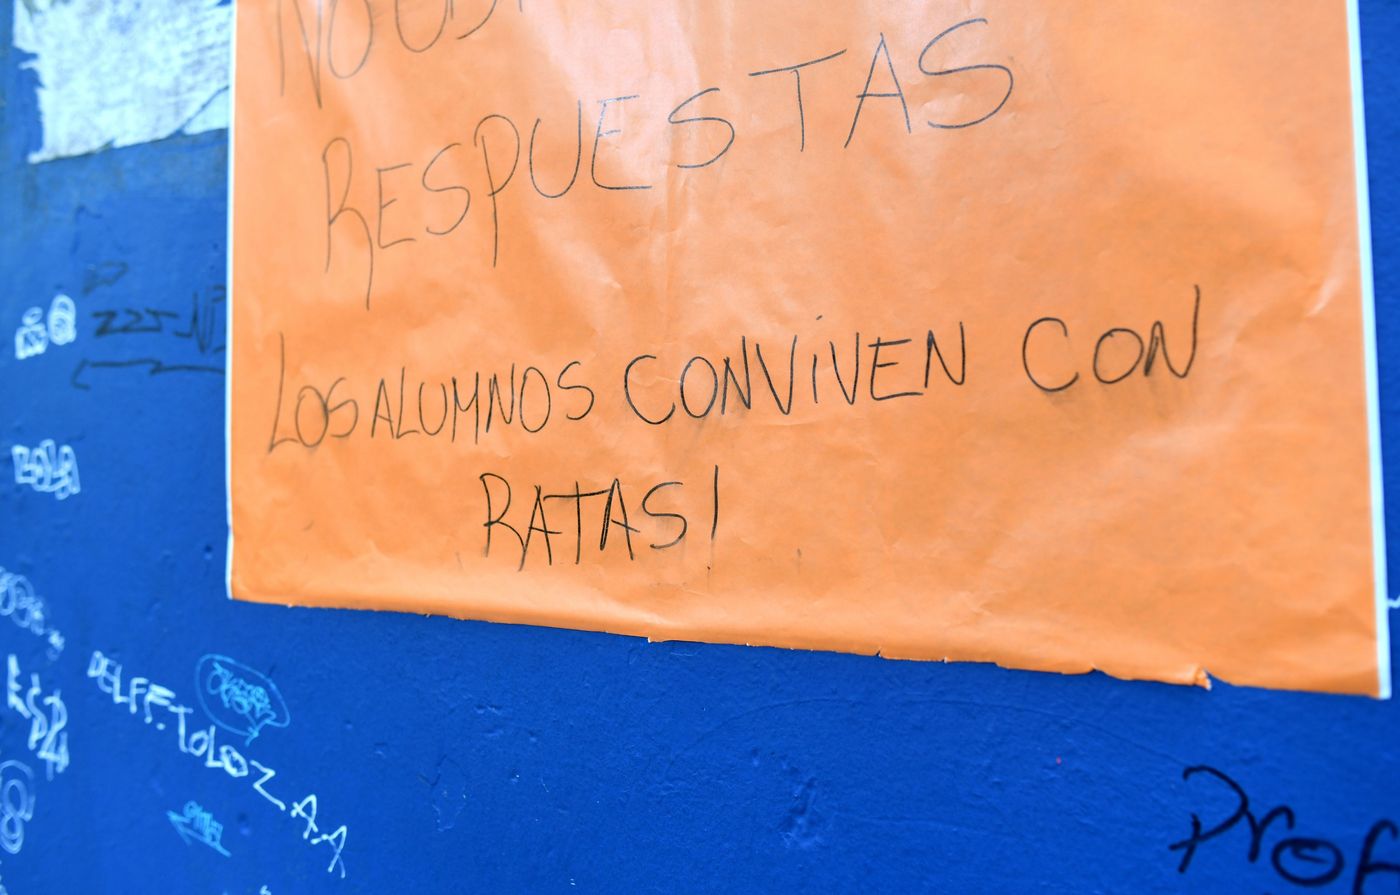 NO
RESPUESTAS
LOS ALUMNOS CONVIVEN CON
RATAS!
LOLA
DELFF.TOLOZAA
Prof